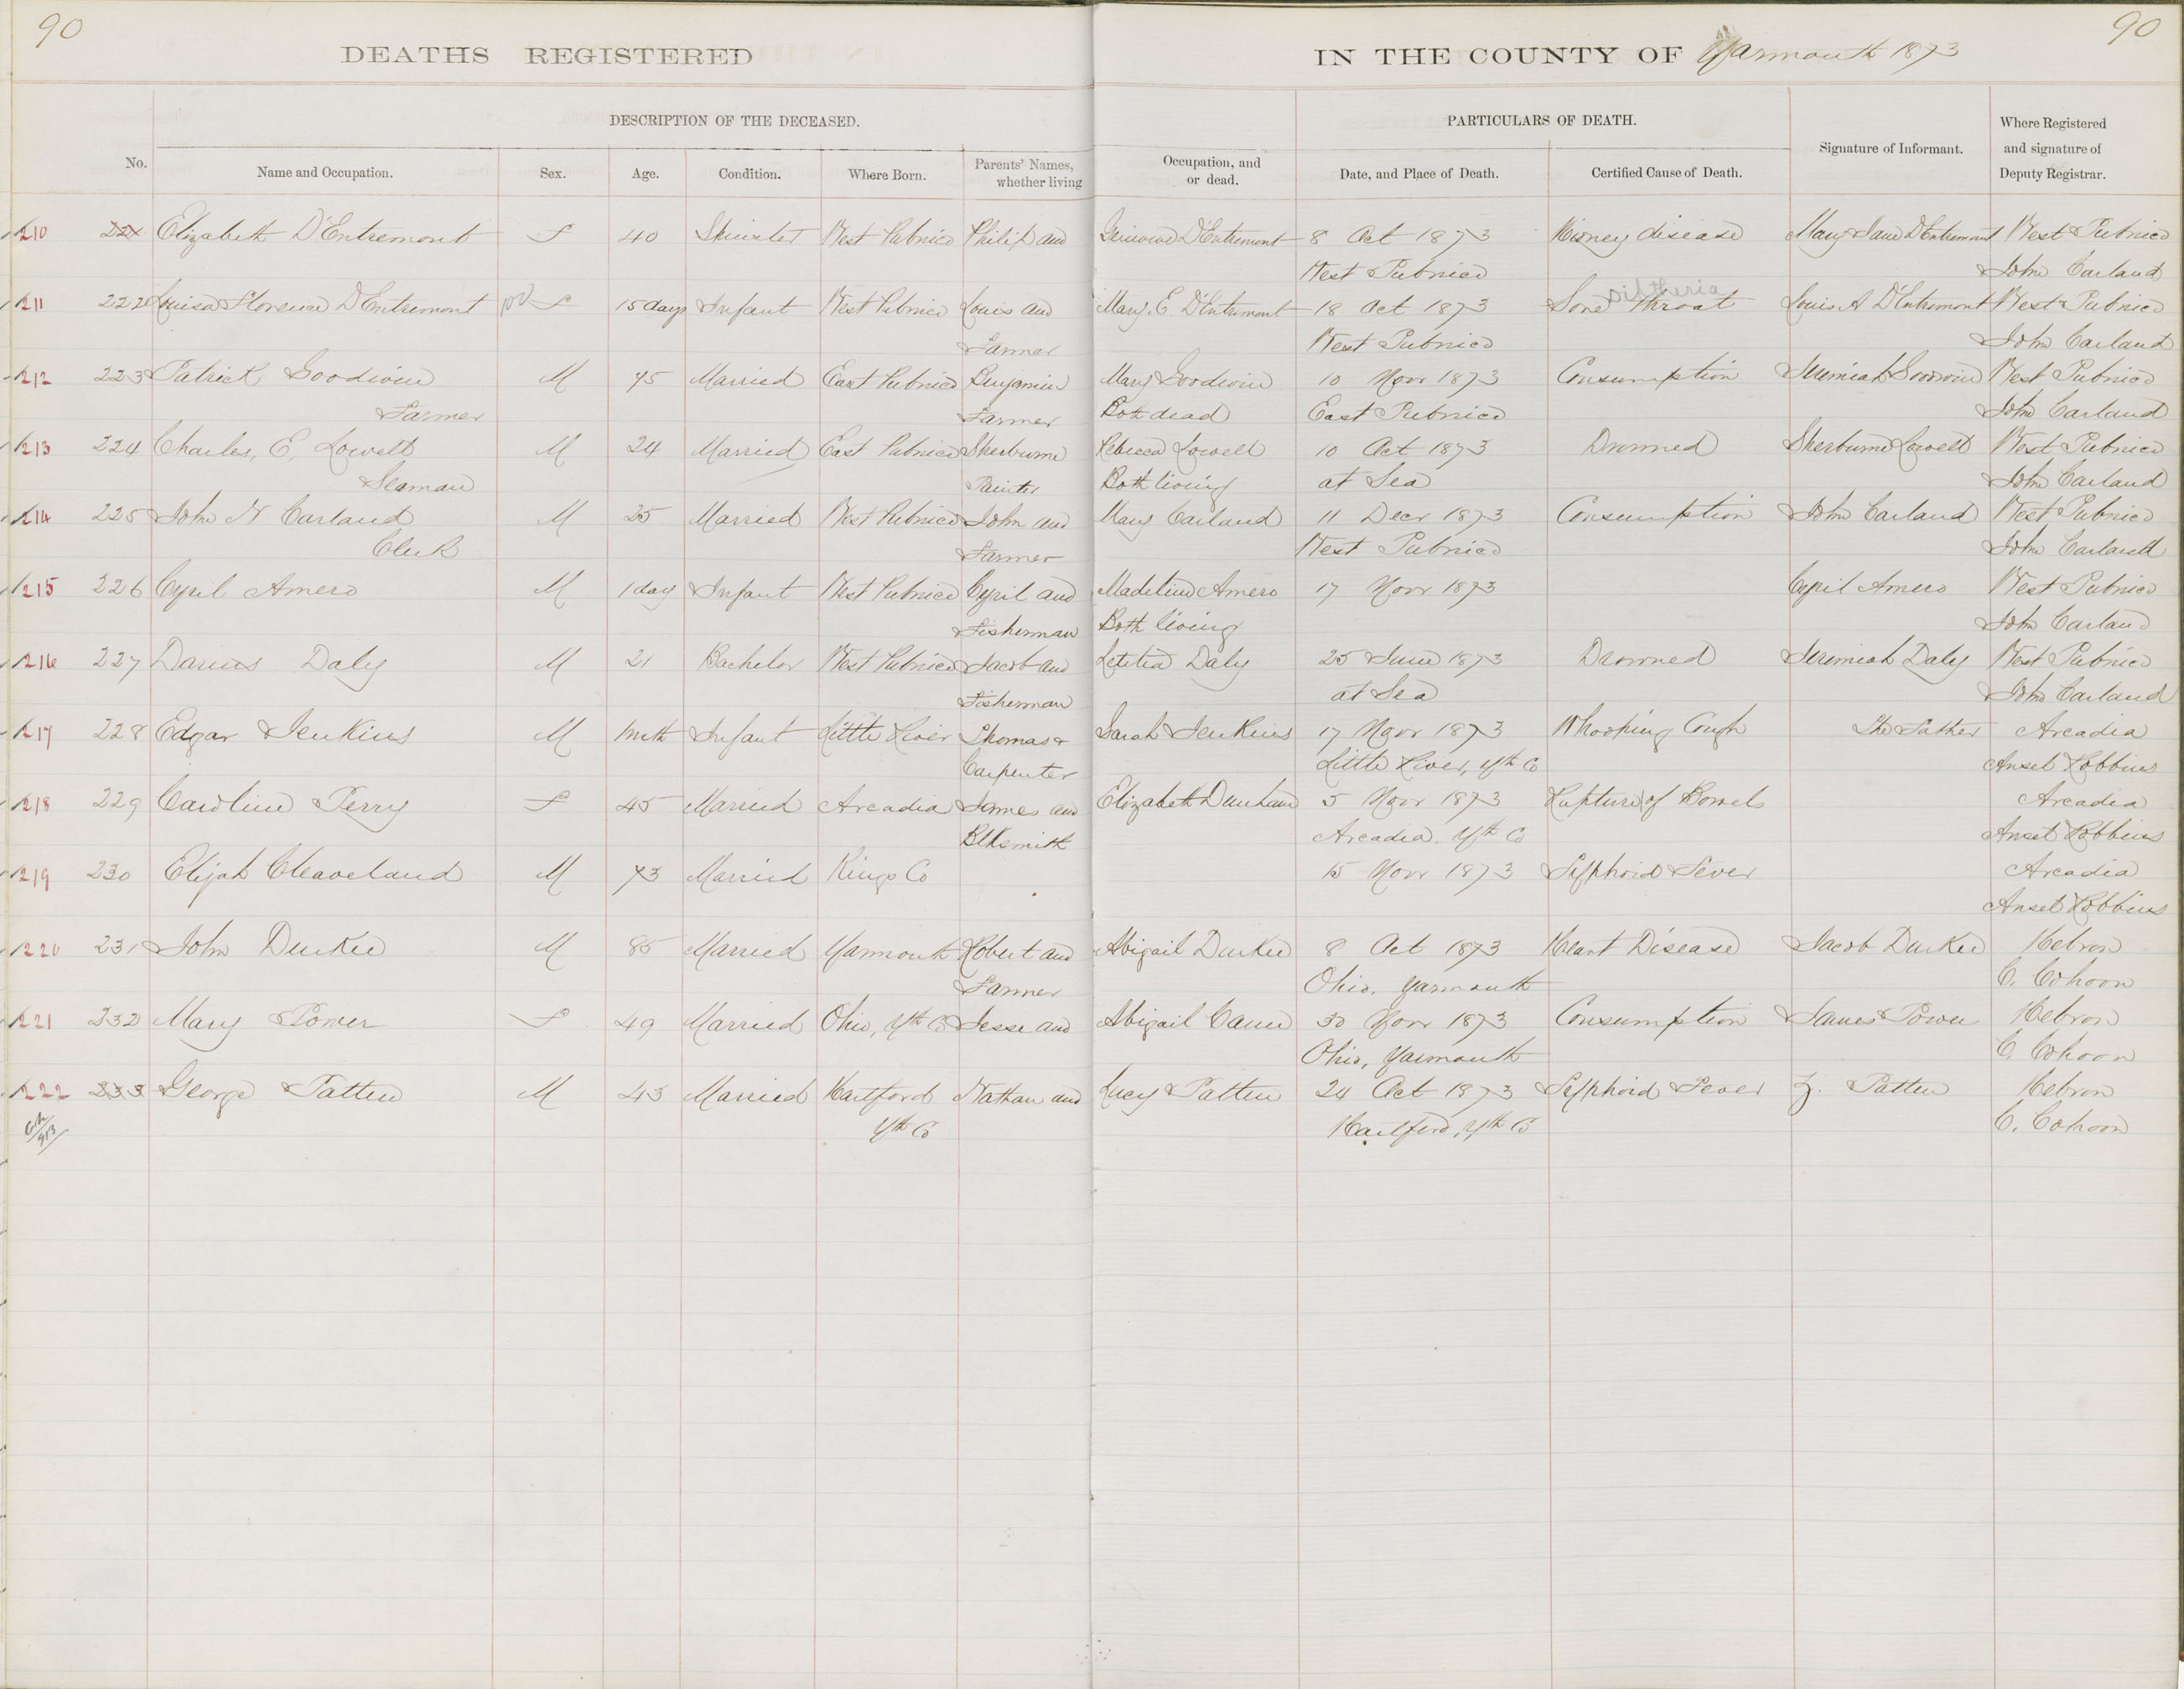 90
90
DEATHS REGISTERED
IN THE COUNTY OF Yarmouth 1873
DESCRIPTION OF THE DECEASED.
PARTICULARS OF DEATH.
No.
Name and Occupation.
Sex.
Age.
Condition.
Where Born.
Parents' Names, whether living
Occupation, and or dead.
Date, and Place of Death.
Certified Cause of Death.
Signature of Informant.
Where Registered and signature of Deputy Registrar.
1210 221 Elizabeth D'Entremont F 40 Spinster West Pubnico Philip and D'Entremont 8 Oct 1873 Kidney disease Mary Jane D'Entremont West Pubnico
West Pubnico John Carland
1211 222 Louisa Florence D'Entremont F 15 days Infant West Pubnico Louis and Mary. E D'Entremont 18 Oct 1873 Sore throat Diptheria Louis A D'Entremont West Pubnico
Farmer West Pubnico John Carland
1212 223 Patrick Goodwin M 75 Married East Pubnico Benjamin Mary Goodwin 10 Novr 1873 Consumption Jeremiah Goodwin West Pubnico
Farmer Farmer Both dead East Pubnico John Carland
1213 224 Charles, E, Lowell M 24 Married East Pubnico Sherburne Rebecca Lowell 10 Oct 1873 Drowned Sherburne Lowell West Pubnico
Seaman Painter Both living at Sea John Carland
1214 225 John N Carland M 25 Married West Pubnico John and Mary Carland 11 Decr 1873 Consumption John Carland West Pubnico
Clerk Farmer West Pubnico John Carland
1215 226 Cyril Amero M 1 day Infant West Pubnico Cyril and Madeline Amero 17 Novr 1873 Cyril Amero West Pubnico
Fisherman Both living John Carland
1216 227 Darius Daly M 21 Bachelor West Pubnico Jacob and Letitia Daly 25 June 1873 Drowned Jeremiah Daly West Pubnico
Fisherman at Sea John Carland
1217 228 Edgar Jenkins M 1 mth Infant Little River Thomas & Sarah Jenkins 17 Novr 1873 Whooping Cough The Father Arcadia
Carpenter Little River, Yth Co Ansel Robbins
1218 229 Caroline Perry F 45 Married Arcadia James and Elizabeth Dunham 5 Novr 1873 Rupture of Bowels Arcadia
Blksmith Arcadia. Yth Co Ansel Robbins
1219 230 Elijah Cleaveland M 73 Married Kings Co 15 Novr 1873 Typhoid Fever Arcadia
Ansel Robbins
1220 231 John Durkee M 85 Married Yarmouth Robert and Abigail Durkee 8 Oct 1873 Heart Disease Jacob Durkee Hebron
Farmer Ohio, Yarmouth C. Cohoon
1221 232 Mary Power F 49 Married Ohio, Yth Co Jesse and Abigail Cann 30 Novr 1873 Consumption James Power Hebron
Ohio, Yarmouth C. Cohoon
1222 233 George Patten M 43 Married Hartford Nathan and Lucy Patten 24 Oct 1873 Typhoid Fever Z. Patten Hebron
Yth Co Hartford, Yth Co C. Cohoon